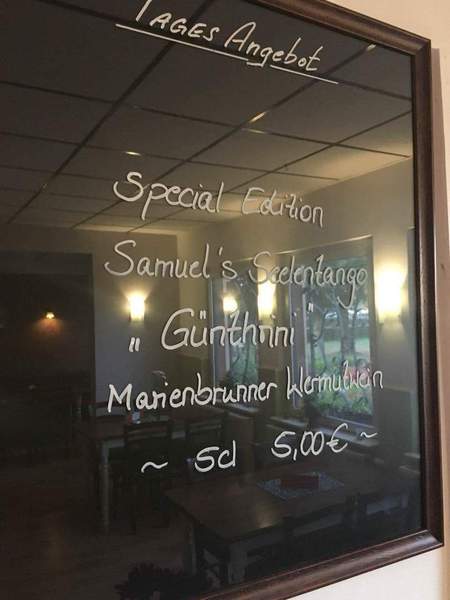 TAGES Angebot
Special Edition
Samuel's Seelentango
„Günthrini"
Marienbrunner Wermutwein
~ 5cl 5,00€ ~